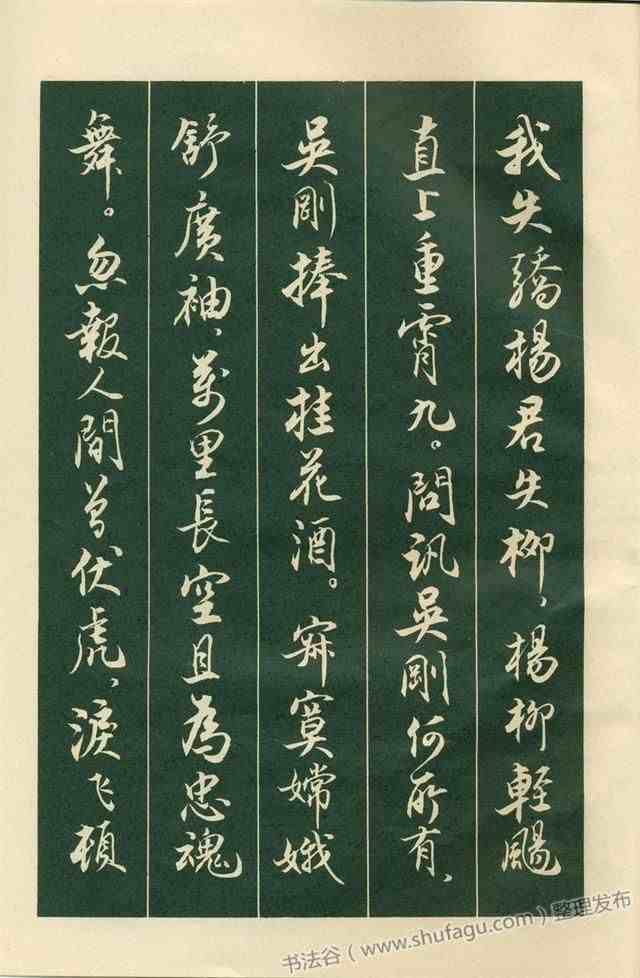 我失驕楊君失柳，楊柳輕颺
直上重霄九。問訊吳剛何所有、
吳剛捧出桂花酒。寂寞嫦娥
舒廣袖、萬里長空且為忠魂
舞。忽報人間曾伏虎、淚飛頓
书法谷（www.shufagu.com）整理发布